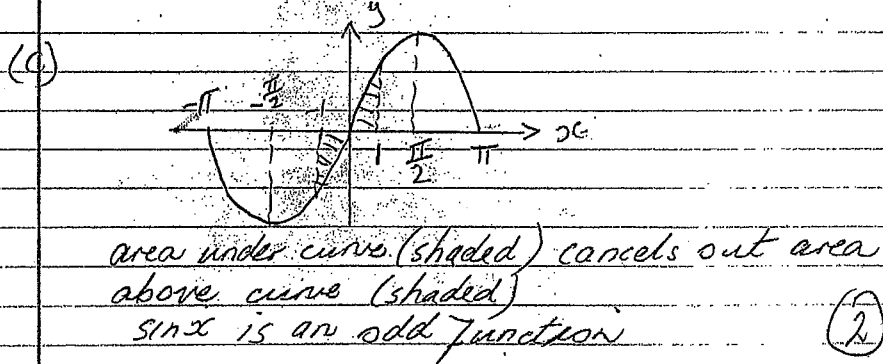 (c)
y
-π -π/2 -1
1 π/2 π x
area under curve (shaded) cancels out area
above curve (shaded)
sinx is an odd function
2